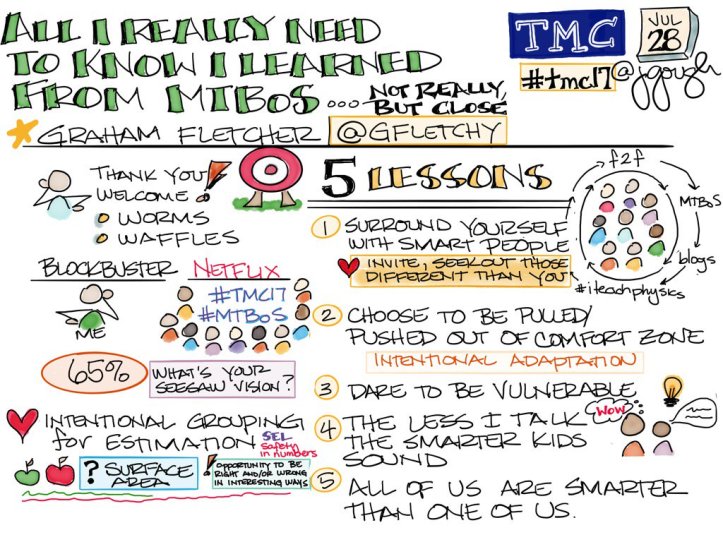 ALL I REALLY NEED
TO KNOW I LEARNED
FROM MTBoS...
NOT REALLY,
BUT CLOSE
TMC
JUL
28
#tmc17
@jgough
GRAHAM FLETCHER
@GFLETCHY
THANK YOU
WELCOME
WORMS
WAFFLES
BLOCKBUSTER
NETFLIX
ME
#TMC17
#MTBoS
65%
WHAT'S YOUR
SEESAW VISION?
INTENTIONAL GROUPING
for ESTIMATION
SEL
safety
in numbers
? SURFACE
AREA
OPPORTUNITY TO BE
RIGHT AND/OR WRONG
IN INTERESTING WAYS
5 LESSONS
1 SURROUND YOURSELF
WITH SMART PEOPLE
INVITE, SEEK OUT THOSE
DIFFERENT THAN YOU
f2f
MTBoS
blogs
#iteachphysics
2 CHOOSE TO BE PULLED/
PUSHED OUT OF COMFORT ZONE
INTENTIONAL ADAPTATION
3 DARE TO BE VULNERABLE
4 THE LESS I TALK
THE SMARTER KIDS
SOUND
WOW
5 ALL OF US ARE SMARTER
THAN ONE OF US.